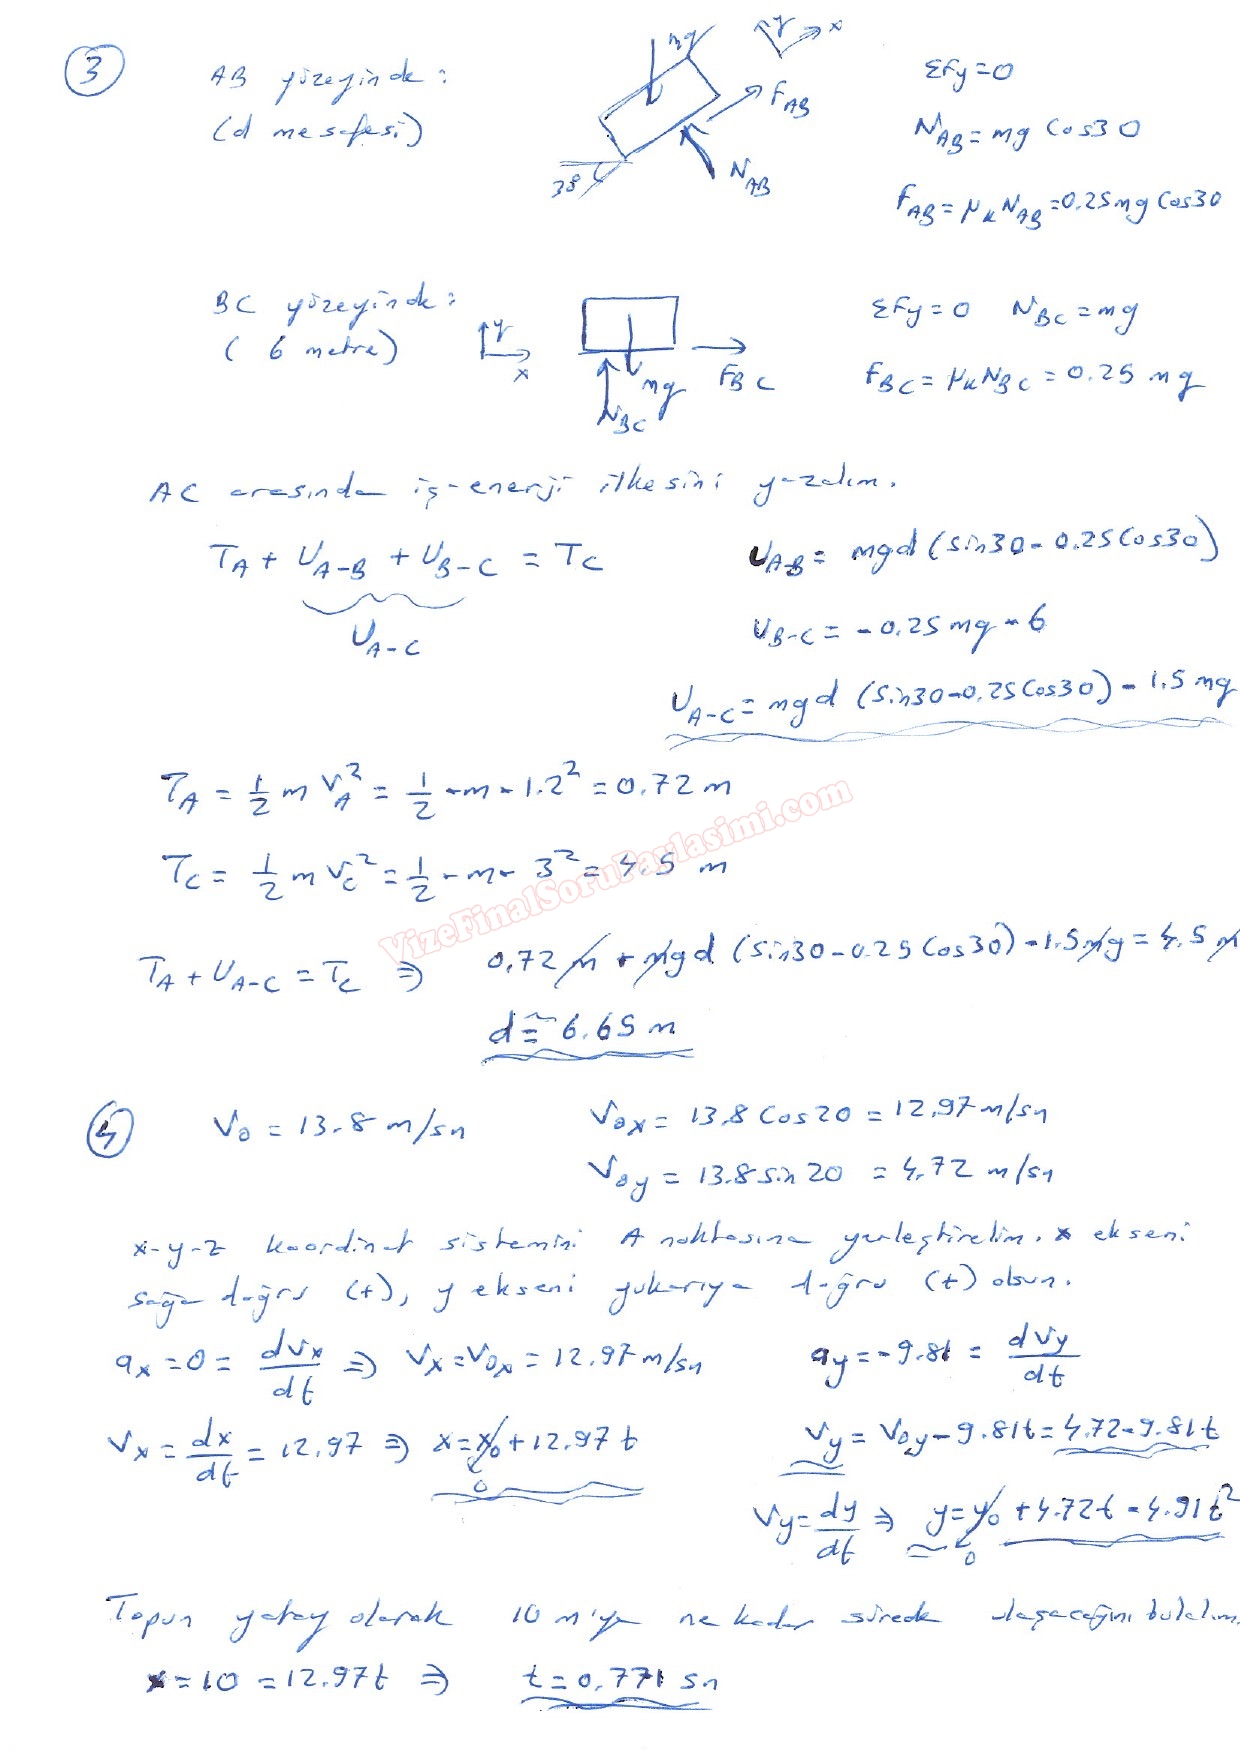 3
AB yüzeyinde:
(d mesafesi)
mg
y x
F_AB
N_AB
30
ΣFy=0
N_AB = mg Cos30
F_AB = μk N_AB = 0.25mg Cos30
BC yüzeyinde:
( 6 metre)
y
x
mg
N_BC
F_BC
ΣFy=0 N_BC = mg
F_BC = μk N_BC = 0.25 mg
AC arasında iş-enerji ilkesini yazalım.
T_A + U_A-B + U_B-C = T_C
U_A-C
U_A-B = mgd (sin30 - 0.25Cos30)
U_B-C = -0.25 mg · 6
U_A-C = mgd (Sin30-0.25Cos30) - 1.5 mg
T_A = 1/2 m V_A² = 1/2 · m · 1.2² = 0.72 m
T_C = 1/2 m V_C² = 1/2 · m · 3² = 4.5 m
VizeFinalSoruPaylasimi.com
T_A + U_A-C = T_C ⇒ 0.72 m + mgd (sin30-0.25Cos30) - 1.5mg = 4.5 m
d ≅ 6.65 m
4
V0 = 13.8 m/sn
V0x = 13.8 Cos20 = 12.97 m/sn
V0y = 13.8 sin 20 = 4.72 m/sn
x-y-z koordinat sistemini A noktasına yerleştirelim. x ekseni
sağa doğru (+), y ekseni yukarıya doğru (+) olsun.
ax = 0 = dVx/dt ⇒ Vx = V0x = 12.97 m/sn
ay = -9.81 = dVy/dt
Vx = dx/dt = 12.97 ⇒ x = x0 + 12.97 t
0
Vy = V0y - 9.81t = 4.72-9.81t
Vy = dy/dt ⇒ y = y0 + 4.72t - 4.91t²
0
Topun yatay olarak 10 m'ye ne kadar sürede ulaşacağını bulalım.
x = 10 = 12.97t ⇒ t = 0.771 sn